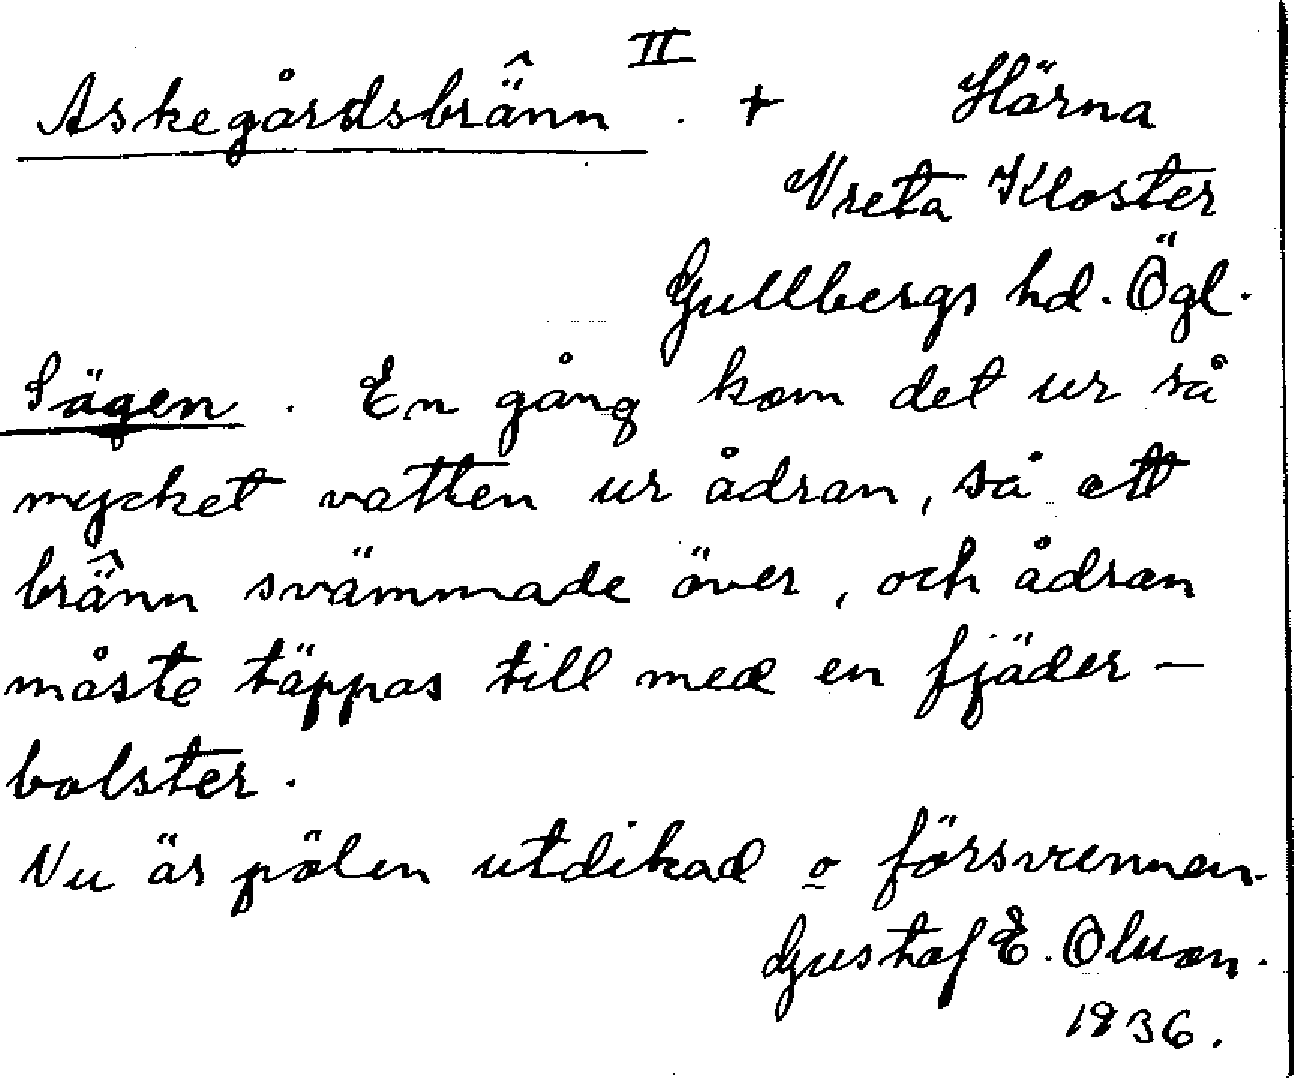 II
Askegårdsbränn̂. + Härna
Vreta Kloster
Gullbergs hd. Ögl.
Sägen. En gång kom det ur så
mycket vatten ur ådran, så att
bränn̂ svämmade över, och ådran
måste täppas till med en fjäder-
bolster.
Nu är pölen utdikad o försvunnen.
Gustaf E. Olson.
1936.